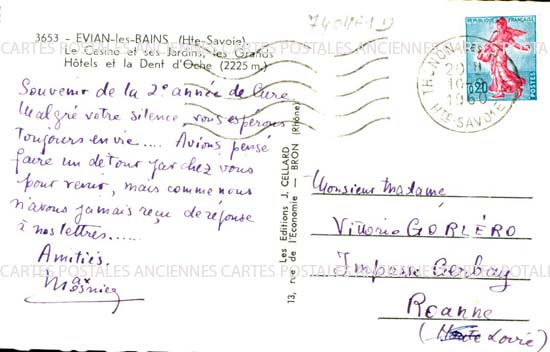 3653 - EVIAN-les-BAINS (Hte-Savoie)
Le Casino et ses Jardins, les Grands
Hôtels et la Dent d'Oche (2225 m.)
Souvenir de la 2e année de Cure
Malgré votre silence, vous espérons
toujours en vie.... Avions pensé
faire un détour par chez vous
pour venir, mais comme nous
n'avons jamais reçu de réponse
à nos lettres.....
Amitiés.
Les Editions J. CELLARD
13, rue de l'Economie — BRON (Rhône)
REPUBLIQUE FRANÇAISE
0,20
POSTES
THONON-LES
20 H
10-9
1960
HTE-SAVOIE
Monsieur Madame
Vittorio GORLÉRO
Impasse Gerbay
Roanne
(Haute Loire)
CARTES POSTALES ANCIENNES CARTES POSTALES ANCIENNES CARTES POSTALES